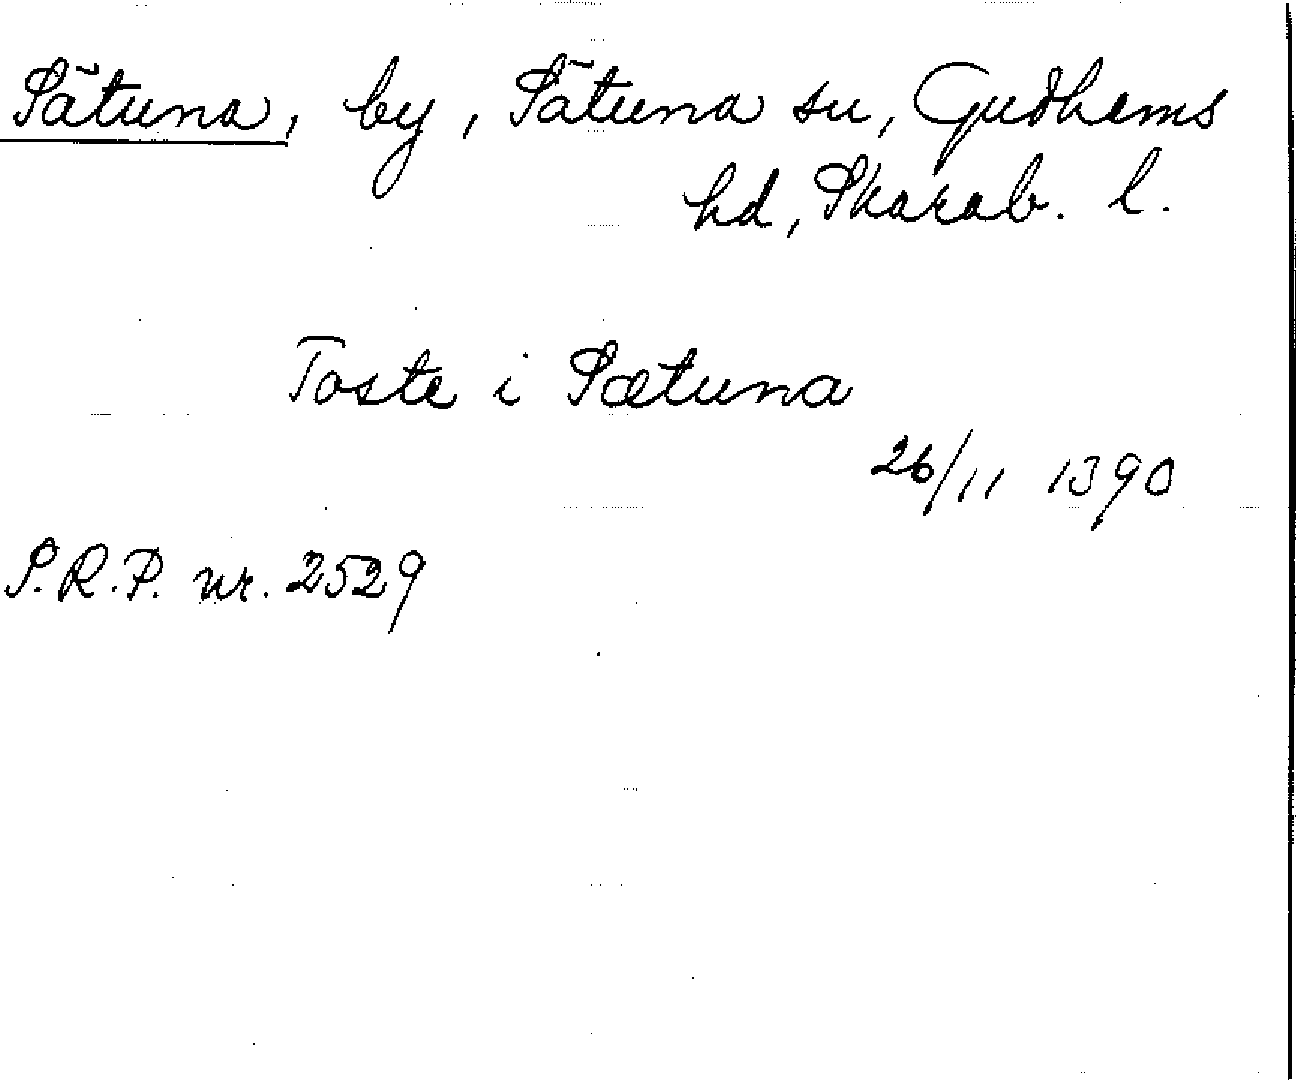 Sätuna, by, Sätuna sn, Gudhems
hd, Skarab. l.
Toste i Sætuna
26/11 1390
S.R.P. nr. 2529